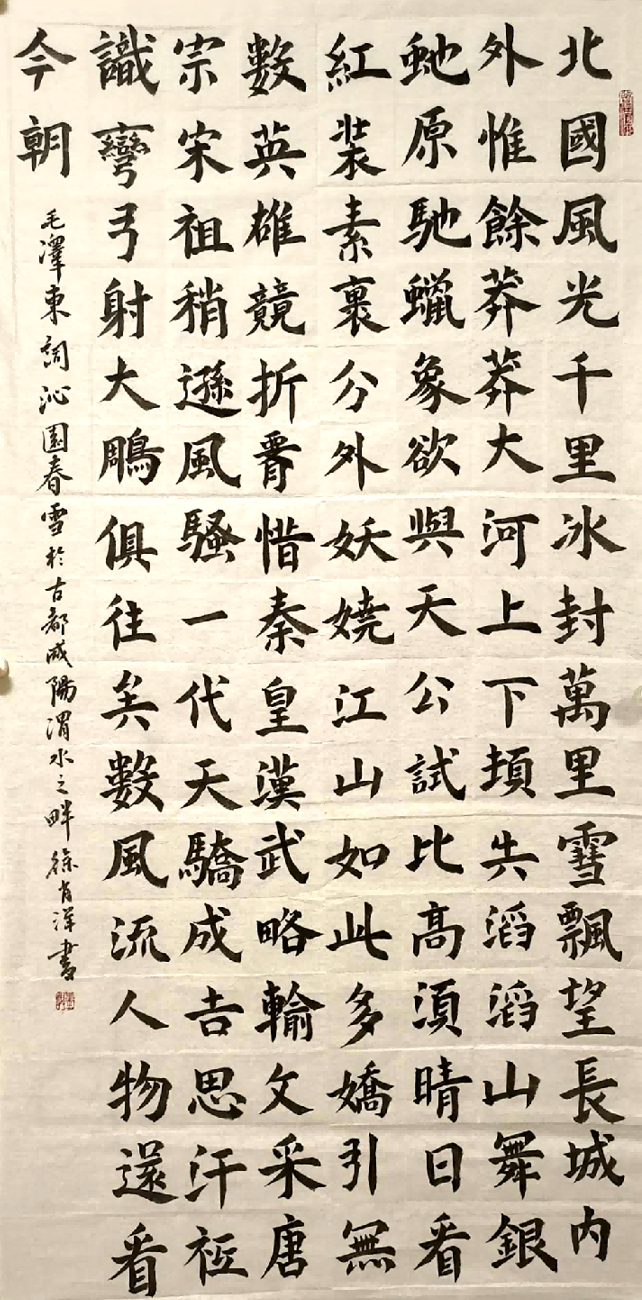 北國風光千里冰封萬里雪飄望長城内
外惟餘莽莽大河上下頓失滔滔山舞銀
虵原馳蠟象欲與天公試比高須晴日看
紅裝素裹分外妖嬈江山如此多嬌引無
數英雄競折腰惜秦皇漢武略輸文采唐
宗宋祖稍遜風騷一代天驕成吉思汗祗
識彎弓射大鵰俱往矣數風流人物還看
今朝
毛澤東詞沁園春雪於古都咸陽渭水之畔徐肖洋書